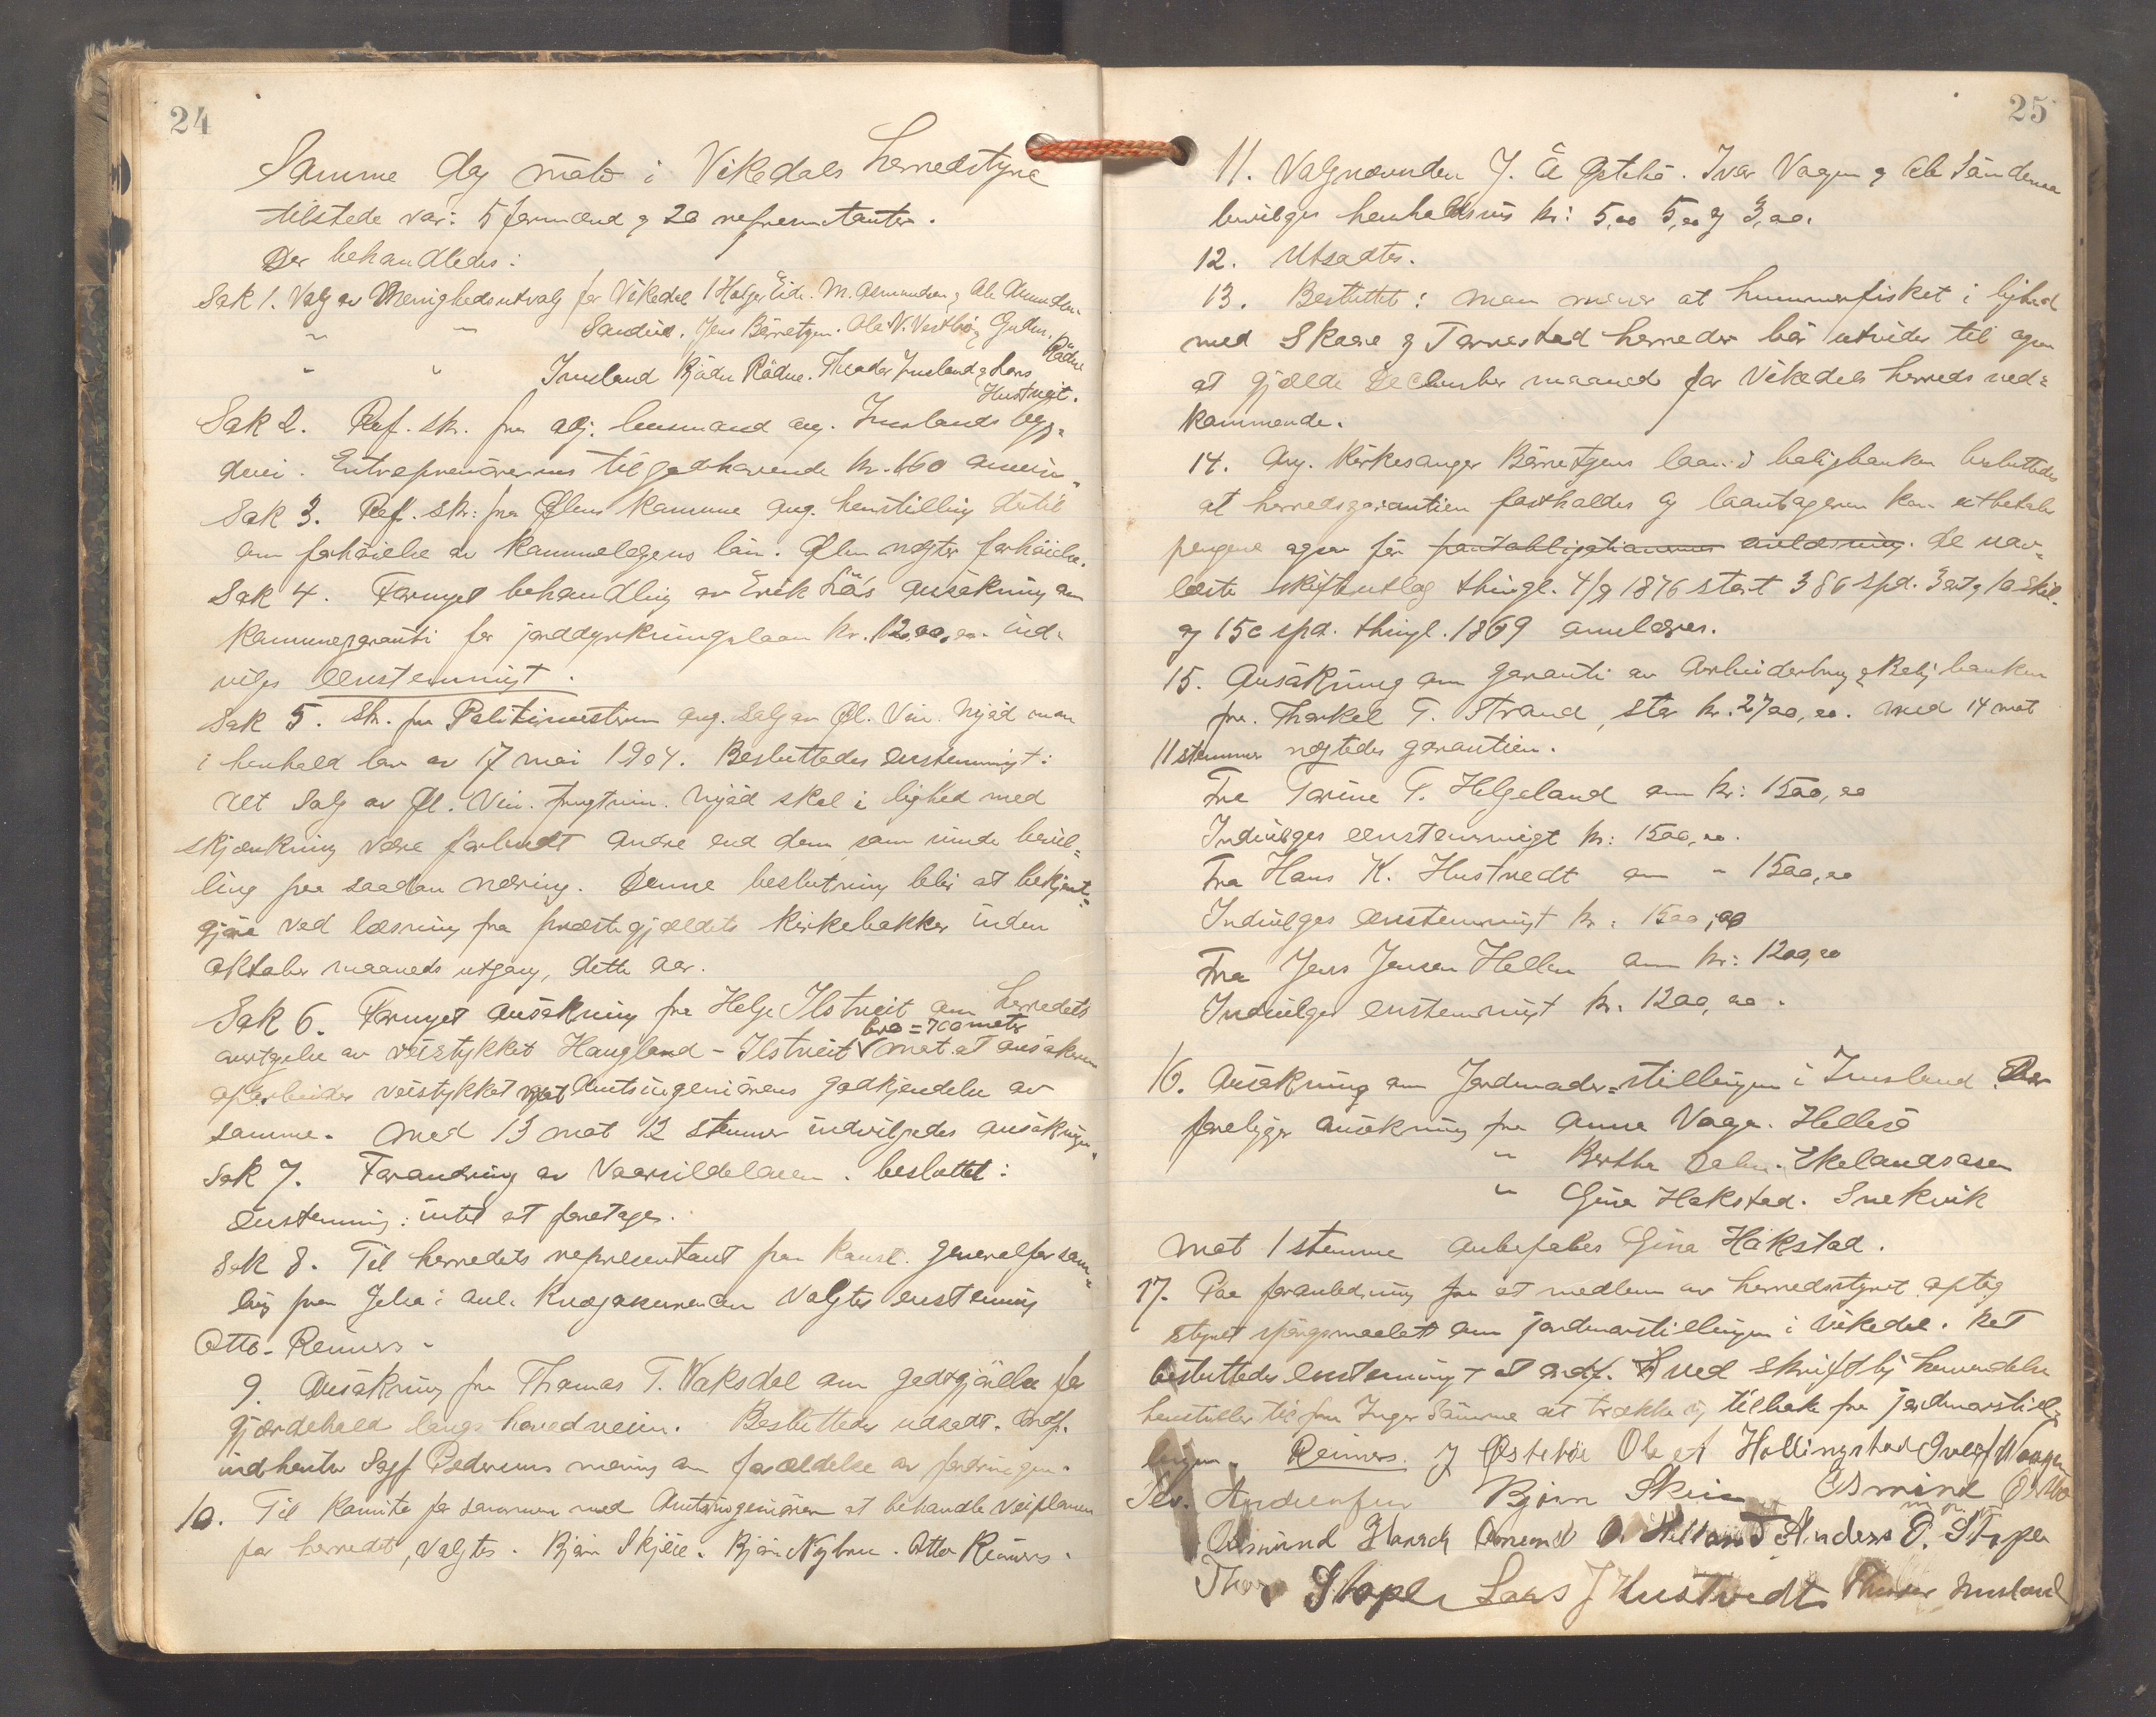 24
Samme dag møte i Vikedals herredstyre
tilstede var: 5 formænd og 20 representanter.
Der behandledes:
Sak 1. Valg av Menighedsutvalg for Vikedal 1 Holger Eide. M. Asmundsen, Ole Amundsen
" " Sandeid. Jens Børretzen. Ola N. Vestbø, Gudm.
Rødne
" " Imsland Bjødn Rødne. Theodor Imsland og Lars
Hustveit.
Sak 2. Ref. skr. fra adj. lensmand ang. Imslands byg=
devei. Entreprenørernes tilgodehavende kr. 160
Sak 3. Ref. skr. fra Ølens kommune ang. henstilling dertil
om forhøielse av kommunelægens løn. Ølen nægter forhøielse.
Sak 4. Fornyet behandling av Erik ansøkning om
kommunegaranti for jorddyrkningslaan kr. 1200,00. ind-
vilges enstemmigt.
Sak 5. Skr. fra Politimesteren ang. Salg av Øl. Vin. Mjød m.m.
i henhold lov av 17 mai 1904. Besluttedes enstemmigt:
Alt Salg av Øl. Vin. frugtvin. Mjød skal i lighed med
skjænkning være forbudt andre end dem som vinde bevil=
ling paa saadan næring. Denne beslutning blir at bekjent=
gjøre ved læsning fra præstegjældets kirkebakker inden
oktober maaneds utgang, dette aar.
Sak 6. Fornyet ansøkning fra Helge Ilstveit om herredets
bro = 700 meter
overtagelse av veistykket Haugland - Ilstveit mot at ansøkeren
oparbeider veistykket mot Amtsingeniørens godkjendelse av
samme. Med 13 mot 12 stemmer indvilgedes ansøkningen.
Sak 7. Forandring av Vaarsildeloven. besluttet:
Enstemmig: intet at foretages.
Sak 8. Til herredets representant paa Konst. generalforsam=
ling paa i anl. valgtes enstemmig
Otto Reimers.
9. Ansøkning fra Thomas T. Vaksdal om godtgjørelse for
gjærdehold langs hovedveien. Besluttedes udsadt. Ordf.
indhenter Sagf. Pedersens mening om forældelse av fordringen.
10. Til Komite for sammen med Amtsingeniøren at behandle veiplanen
for herredet, valgtes. Bjørn Skjeie. Bjørn Nybru. Otto Reimers.
25
11. Valgnævnden J. Østebø. Ivar Vagen og Ole Sandenes
bevilges henholdsvis kr: 5,00 5,00 og 3,00.
12. Utsadtes.
13. Besluttet: man mener at hummerfisket i lighed
med Skaare og Torvestad herreder bør utvides til ogsaa
at gjælde December maaned for Vikedals herreds ved=
kommende.
14. Ang. Kirkesanger Børretzens laan i boligbanken besluttedes
at herredsgarantien fastholdes og laantageren kan utbetales
pengene ogsaa før pantobligationernes avlæsning. de uav=
læste skifteutlæg thingl. 4/9 1876 stort 386 spd. 3 ort og 10 skil.
og 150 spd. thingl. 1869
15. Ansøkning om garanti av Arbeiderbrug og Bolig banken
fra. Thorkel T. Strand, stor kr. 2700,00. med 14 mot
11 stemmer nægtedes garantien.
Fra Torine T. Helgeland om kr: 1500,00
Indvilges enstemmigt kr: 1500,00.
Fra Hans K. Hustvedt om - 1500,00
Indvilges enstemmigt kr: 1500,00
Fra Jens Jensen Hellen om kr: 1200,00
Indvilges enstemmigt kr. 1200,00.
16. Ansøkning om Jordmoder=stillingen i Imsland. Der
foreligger ansøkning fra Anna Vaga. Hellesø
" Bertha Dalen. Ekelandsosen
" Gina Hakstad. Snekvik
mot 1 stemme anbefales Gina Håkstad.
17. Paa foranledning fra et medlem av herredsstyret optog
styret spørgsmaalet om jordmorstillingen i Vikedal. Det
besluttedes enstemmigt at ordf. ved skriftlig henvendelse
henstiller til fru Inger Sømme at trække sig tilbake fra jordmorstil=
lingen. Reimers. J Østebø Ole A Hollingstad
Bjørn Skeie Osmund
Osmund O. Helland T. Anders O. Stople
Stople Lars J Hustvedt Imsland